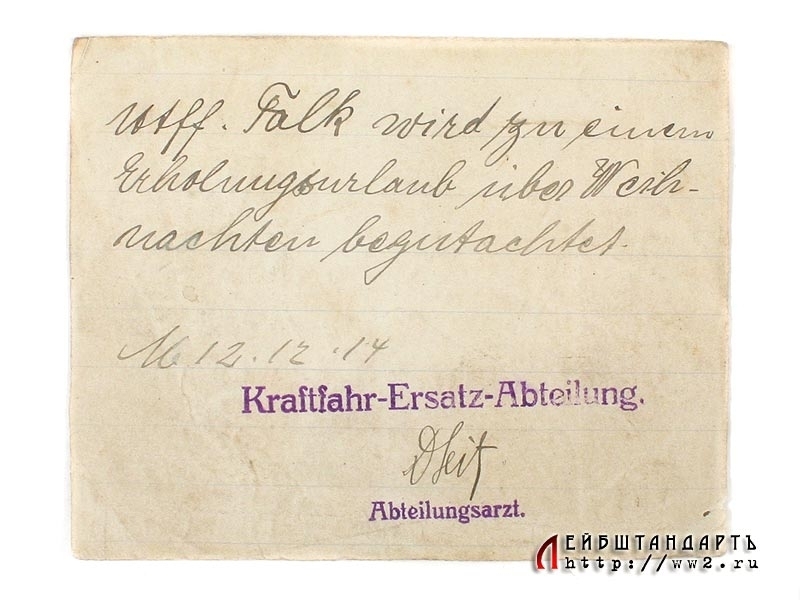 Utff. Falk wird zu einem
Erholungsurlaub über Weih-
nachten begutachtet.
M 12.12.14
Kraftfahr-Ersatz-Abteilung.
Abteilungsarzt.
ЛЕЙБШТАНДАРТЪ
http://ww2.ru